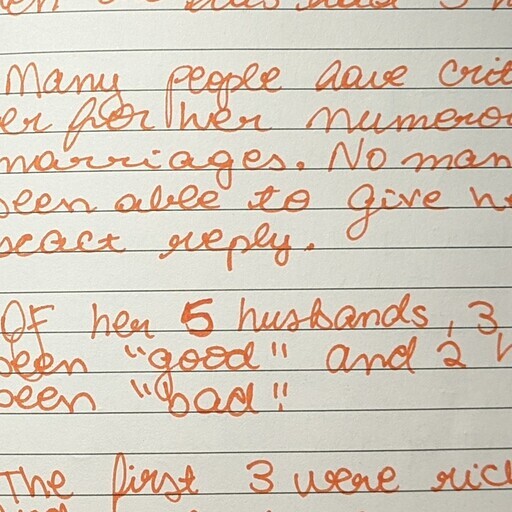 Many people have crit
er for her numero
marriages. No man
been able to give h
exact reply.
Of her 5 husbands, 3
been "good" and 2 h
been "bad"!
The first 3 were ric